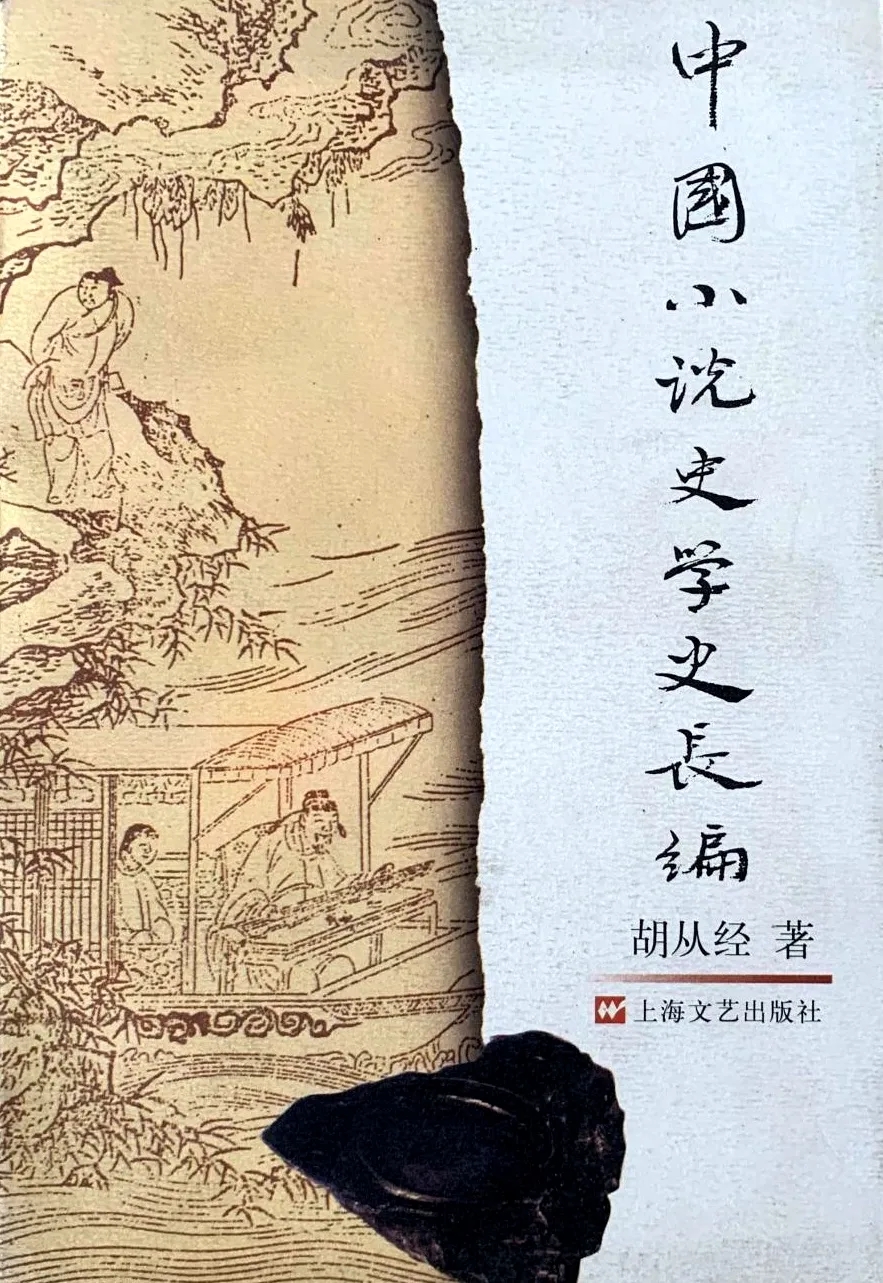 中國小说史学史長编
胡从经 著
上海文艺出版社